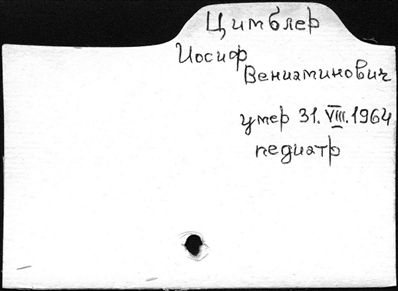 Цимблер
Иосиф
Вениаминович
умер 31.VIII.1964
педиатр